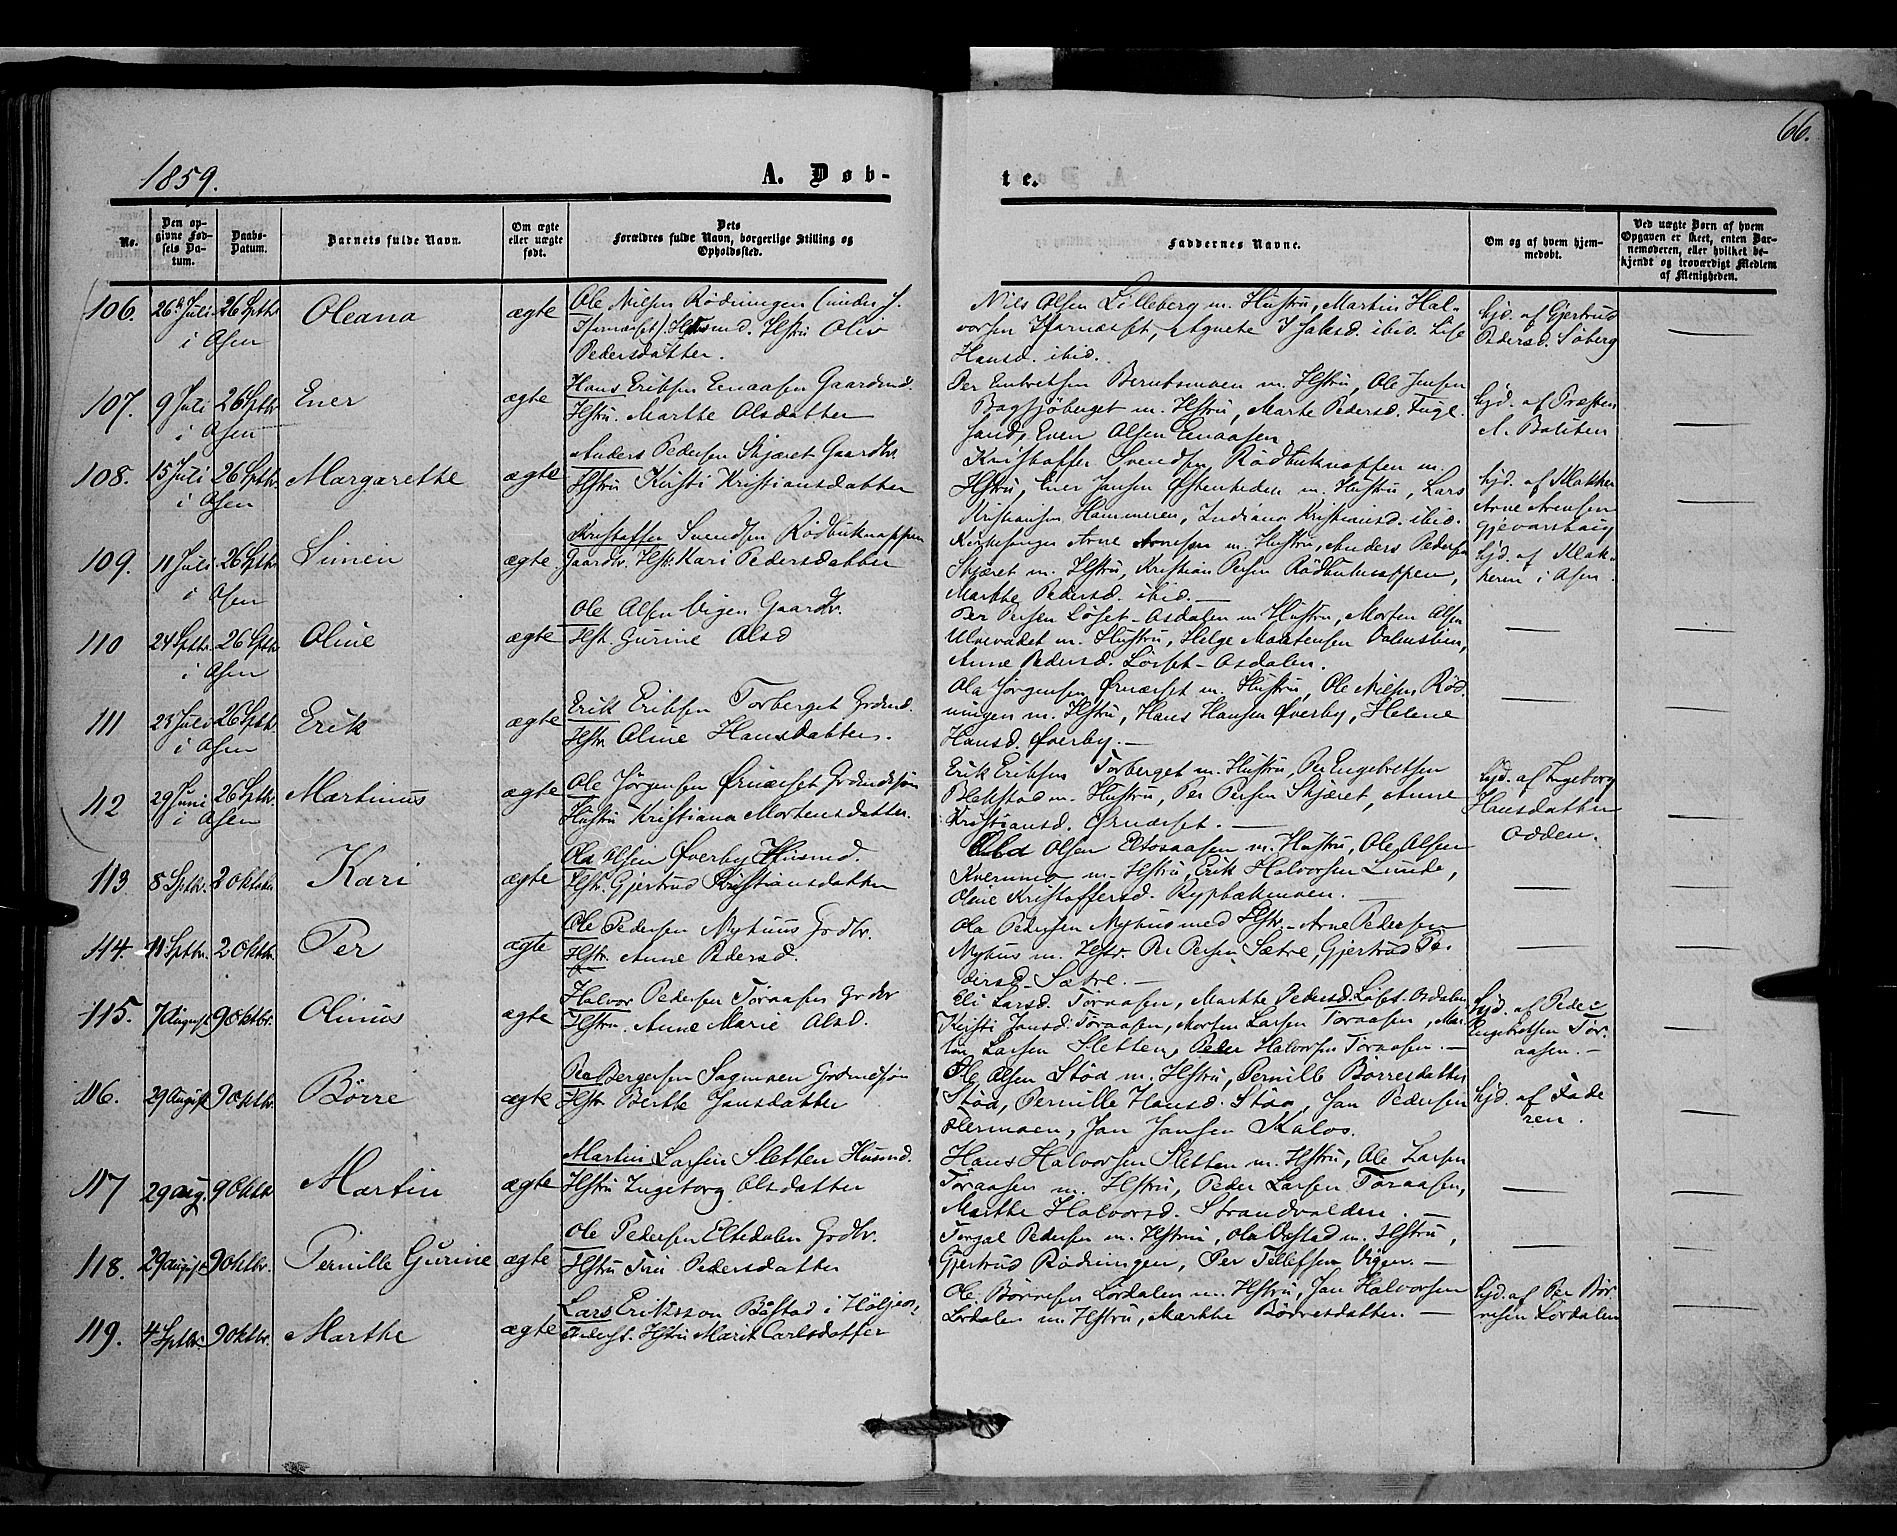 66.
1859.
A. Døb-
te.
No.
Den op-
givne Fød-
sels Da-
tum.
Daabs-
Datum.
Barnets fulde Navn.
Om ægte
eller uægte
født.
Dets
Forældres fulde Navn, borgerlige Stilling og
Opholdssted.
Faddernes Navne.
Om og af hvem hjem-
medøbt.
Ved uægte Børn af hvem
Opgaven er skeet, enten Bar-
nemoderen, eller hvilket be-
kjendt og troværdigt Medlem
af Menigheden.
106. 26 Juli 26 Septbr Oleana ægte
i Aasen
Ole Nilsen Rödningen (under
Husmd. Hstru Oliv
Pedersdatter.
Nils Olsen Lilleberg m. Hustru, Martin Hal-
vorsen Agnete ibid. Lise
Hansd. ibid.
hjd. af Gjertrud
Pedersd. Söberg
107. 9 Juli 26 Septbr Ener ægte
i Aasen
Hans Eriksen Enaasen Gaardmd.
Hstru. Marthe Olsdatter
Per Embretsen m. Hstru, Ole Jensen
Bagsjöberget m. Hstru, Marte Pedersd. Fugl-
sand, Even Olsen Enaasen
hjd. af Præsten
108. 15 Juli 26 Septbr Margarethe ægte
i Aasen
Anders Pedersen Skjæret Gaardbr
Hstru Kirsti Kristiansdatter
Kristoffer Svendsen Rödbuknappen m.
Hstru, Ener Jansen Östenheden m. Hustru, Lars
Kristiansen Hammeren, Indiana Kristiansd. ibid.
hjd. af Klokker
Arne Arnesen
Gjevarshaug
109. 11 Juli 26 Septbr Simen ægte
i Aasen
Kristoffer Svendsen Rödbuknappen
Gaardbr. Hstr. Kari Pedersdatter
Kirkesanger Arne Arnesen m. Hustru, Anders Pedersen
Skjæret m. Hstru, Kristian Persen Rödbuknappen,
Marthe Pedersd. ibid.
hjd. af Klok-
keren i Aasen.
110 24 Septbr. 26 Septbr. Oline ægte
i Aasen
Ole Olsen Vigen Gaardbr.
Hstr. Gurine Olsd
Per Persen Löset-Osdalen m. Hustru, Morten Olsen
Ulvevadet m. Hustru, Helge Mortensen
Anne Pedersd. Löset-Osdalen.
111 23 Juli 26 Septbr. Erik ægte
i Aasen
Erik Eriksen Torberget Grdmd.
Hstr Oline Hansdatter.
Ola Jörgensen Örnæset m. Hustru, Ole Nilsen Röd-
ningen m. Hstru, Hans Hansen Överby, Helene
Hansd. Överby.
112 29 Juni 26 Septbr. Martinus ægte
i Aasen
Ole Jörgensen Örnæset Grdmdssön
Hustru Kristiana Mortensdatter.
Erik Eriksen Torberget m. Hustru, Per Engebretsen
Blekstad m. Hustru, Per Persen Skjæret, Anne
Kristiansd. Örnæset.
hjd. af Ingeborg
Hansdatter
Odden.
113 8 Septbr. 2 Oktober Kari ægte
Ola Olsen Överby Husmd.
Hstr. Gjertrud Kristiansdatter
Ola Olsen m. Hustru, Ole Olsen
Kvernmo m. Hstru, Erik Halvorsen Lunde,
Oline Kristoffersd. Rypbækmoen.
114. 11 Septbr. 2 Oktbr. Per ægte
Ole Pedersen Nyhuus Grdbr.
Hstr. Anne Pedersd.
Ola Pedersen Nyhus med Hstr. Arne Pedersen
Nyhus m. Hstr. Per Persen Sætre, Gjertrud Pe-
dersd. Sætre.
115. 7 August 9 Oktbr. Olinus ægte
Halvor Pedersen Töraasen Grdbr
Hstru. Anne Marie Olsd.
Eli Larsd. Töraasen, Marthe Pedersd. Löset-Osdalen
Kirsti Jansd. Töraasen, Morten Larsen Töraasen, Mar-
tin Larsen Sletten, Peder Halvorsen Töraasen.
hjd. af Peder
Engebretsen Tör-
aasen.
116. 29 August 9 Oktbr. Börre ægte
Bergersen Sagmoen Grdmdsön
Hstr Berthe Jansdatter
Ole Olsen Stöa m. Hstru, Pernille Börresdatter
Stöa, Pernille Hansd. Stöa, Jan Pedersen
Jan Jansen Kalos.
hjd. af Fade
ren.
117 29 Aug. 9 Oktbr Martin ægte
Martin Larsen Sletten Husmd.
Hstru Ingeborg Olsdatter
Hans Halvorsen Sletten m. Hstru, Ole Larsen
Töraasen m. Hstru, Peder Larsen Töraasen,
Marthe Halvorsd. Strandvolden.
118. 29 August 9 Oktbr. Pernille Gurine ægte
Ole Pedersen Eltdalen Grdbr.
Hstru Pedersdatter
Torgal Pedersen m. Hstru, Ola m. Hstru,
Gjertrud Rödningen, Per Tollefsen Vigen.
119. 4 Septbr. 9 Oktbr. Marthe ægte
Lars Eriksson Båstad i Höljes,
Hstru Marit Carlsdatter
Ole Börresen Lördalen m. Hstru, Jan Halvorsen
Lördalen m. Hstru, Marthe Börresdatter.
hjd. af Per Bör-
resen Lördalen